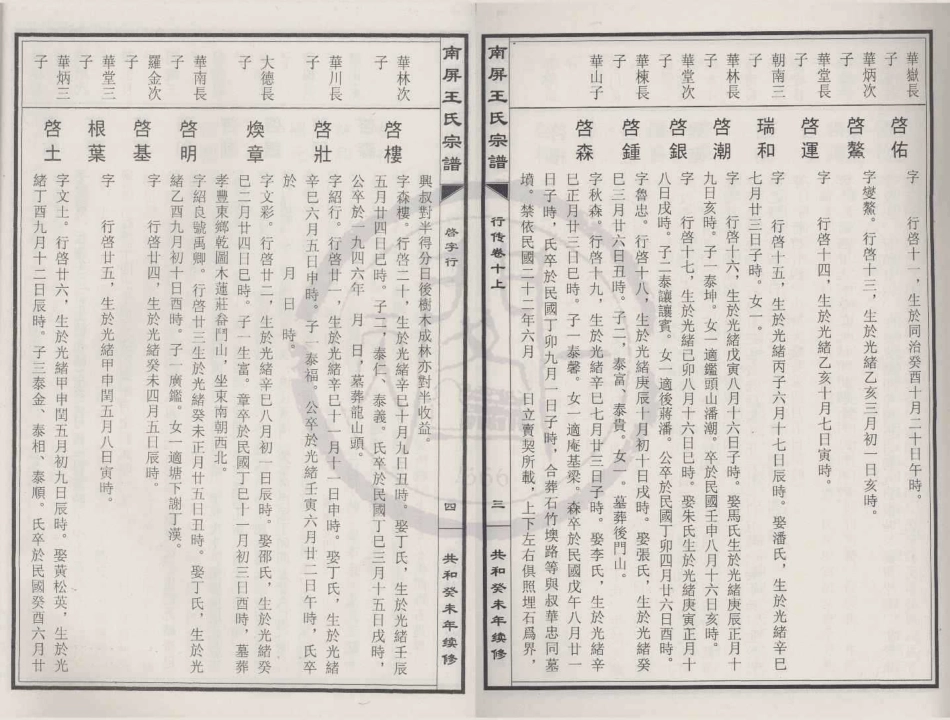 華嶽長
子
啓佑
字　　行啓十一，生於同治癸酉十月二十日午時。
華炳次
子
啓鰲
字燮鰲。行啓十三，生於光緒乙亥三月初一日亥時。
華堂長
子
啓運
字　　行啓十四，生於光緒乙亥十月七日寅時。
朝南三
子
瑞和
字　　行啓十五，生於光緒丙子六月十七日辰時。娶潘氏，生於光緒辛巳
七月廿三日子時。女一。
華林長
子
啓潮
字　　行啓十六，生於光緒戊寅八月十六日子時。娶馬氏生於光緒庚辰正月十
九日亥時。子一泰坤。女一適鑑頭山潘潮。卒於民國壬申八月十六日亥時。
華堂次
子
啓銀
字　　行啓十七，生於光緒己卯八月十六日巳時。娶朱氏生於光緒庚寅正月十
八日戌時。子二泰讓讓賓。女一適後蔣潘。公卒於民國丁卯四月廿六日酉時。
華棟長
子
啓鍾
字魯忠。行啓十八，生於光緒庚辰十月初十日戌時。娶張氏，生於光緒癸
巳三月廿六日丑時。子二，泰富、泰貴。女一。墓葬後門山。
華山子
啓森
字秋森。行啓十九，生於光緒辛巳七月廿三日子時。娶李氏，生於光緒辛
巳正月廿三日巳時。子一泰馨。女一適庵基梁。森卒於民國戊午八月廿一
日子時，氏卒於民國丁卯九月一日子時，合葬石竹墺路等與叔華忠同墓
墳。禁依民國二十二年六月　日立賣契所載，上下左右俱照埋石爲界，
南屏王氏宗譜
行传卷十上
三
共和癸未年续修
南屏王氏宗譜
啓字行
四
共和癸未年续修
興叔對半得分日後樹木成林亦對半收益。
華林次
子
啓樓
字森樓。行啓二十，生於光緒辛巳十月九日丑時。娶丁氏，生於光緒壬辰
五月廿四日巳時。子二，泰仁、泰義。氏卒於民國丁巳三月十五日戌時，
公卒於一九四六年　月　日，墓葬龍山頭。
華川長
子
啓壯
字紹行。行啓廿一，生於光緒辛巳十一月十一日申時。娶丁氏，生於光緒
辛巳六月五日申時。子一泰福。公卒於光緒壬寅六月廿二日午時，氏卒
於　　月　日　時。
大德長
子
煥章
字文彩。行啓廿二，生於光緒辛巳八月初一日辰時。娶邵氏，生於光緒癸
巳二月廿四日巳時。子一生富。章卒於民國丁巳十一月初三日酉時，墓葬
孝豐東鄉乾圖木蓮莊畚門山，坐東南朝西北。
華南長
子
啓明
字紹良號禹卿。行啓廿三生於光緒癸未正月廿五日丑時。娶丁氏，生於光
緒乙酉九月初十日酉時。子一廣鑑。女一適塘下謝丁漢。
羅金次
子
啓基
字　　行啓廿四，生於光緒癸未四月五日辰時。
華堂三
子
根葉
字　　行啓廿五，生於光緒甲申閏五月八日寅時。
華炳三
子
啓土
字文土。行啓廿六，生於光緒甲申閏五月初九日辰時。娶黃松英，生於光
緒丁酉九月十二日辰時。子三泰金、泰相、泰順。氏卒於民國癸酉六月廿